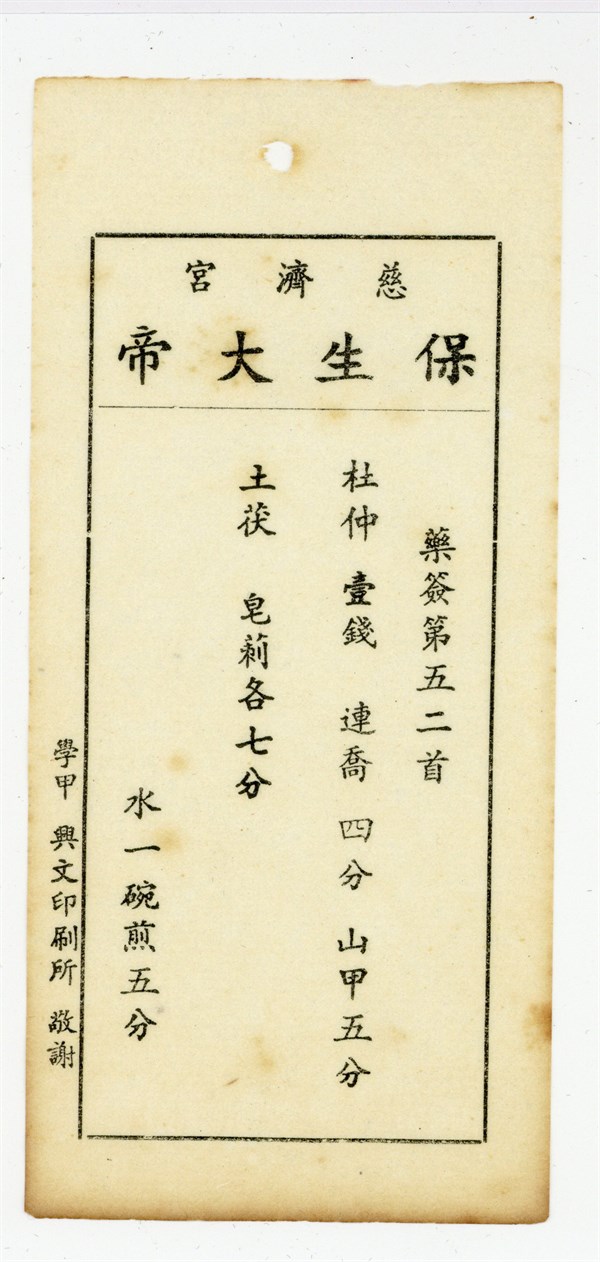 慈濟宮
保生大帝
藥簽第五二首
杜仲 壹錢 連喬 四分 山甲五分
土茯 皂莿各七分
水一碗煎五分
學甲 興文印刷所 敬謝